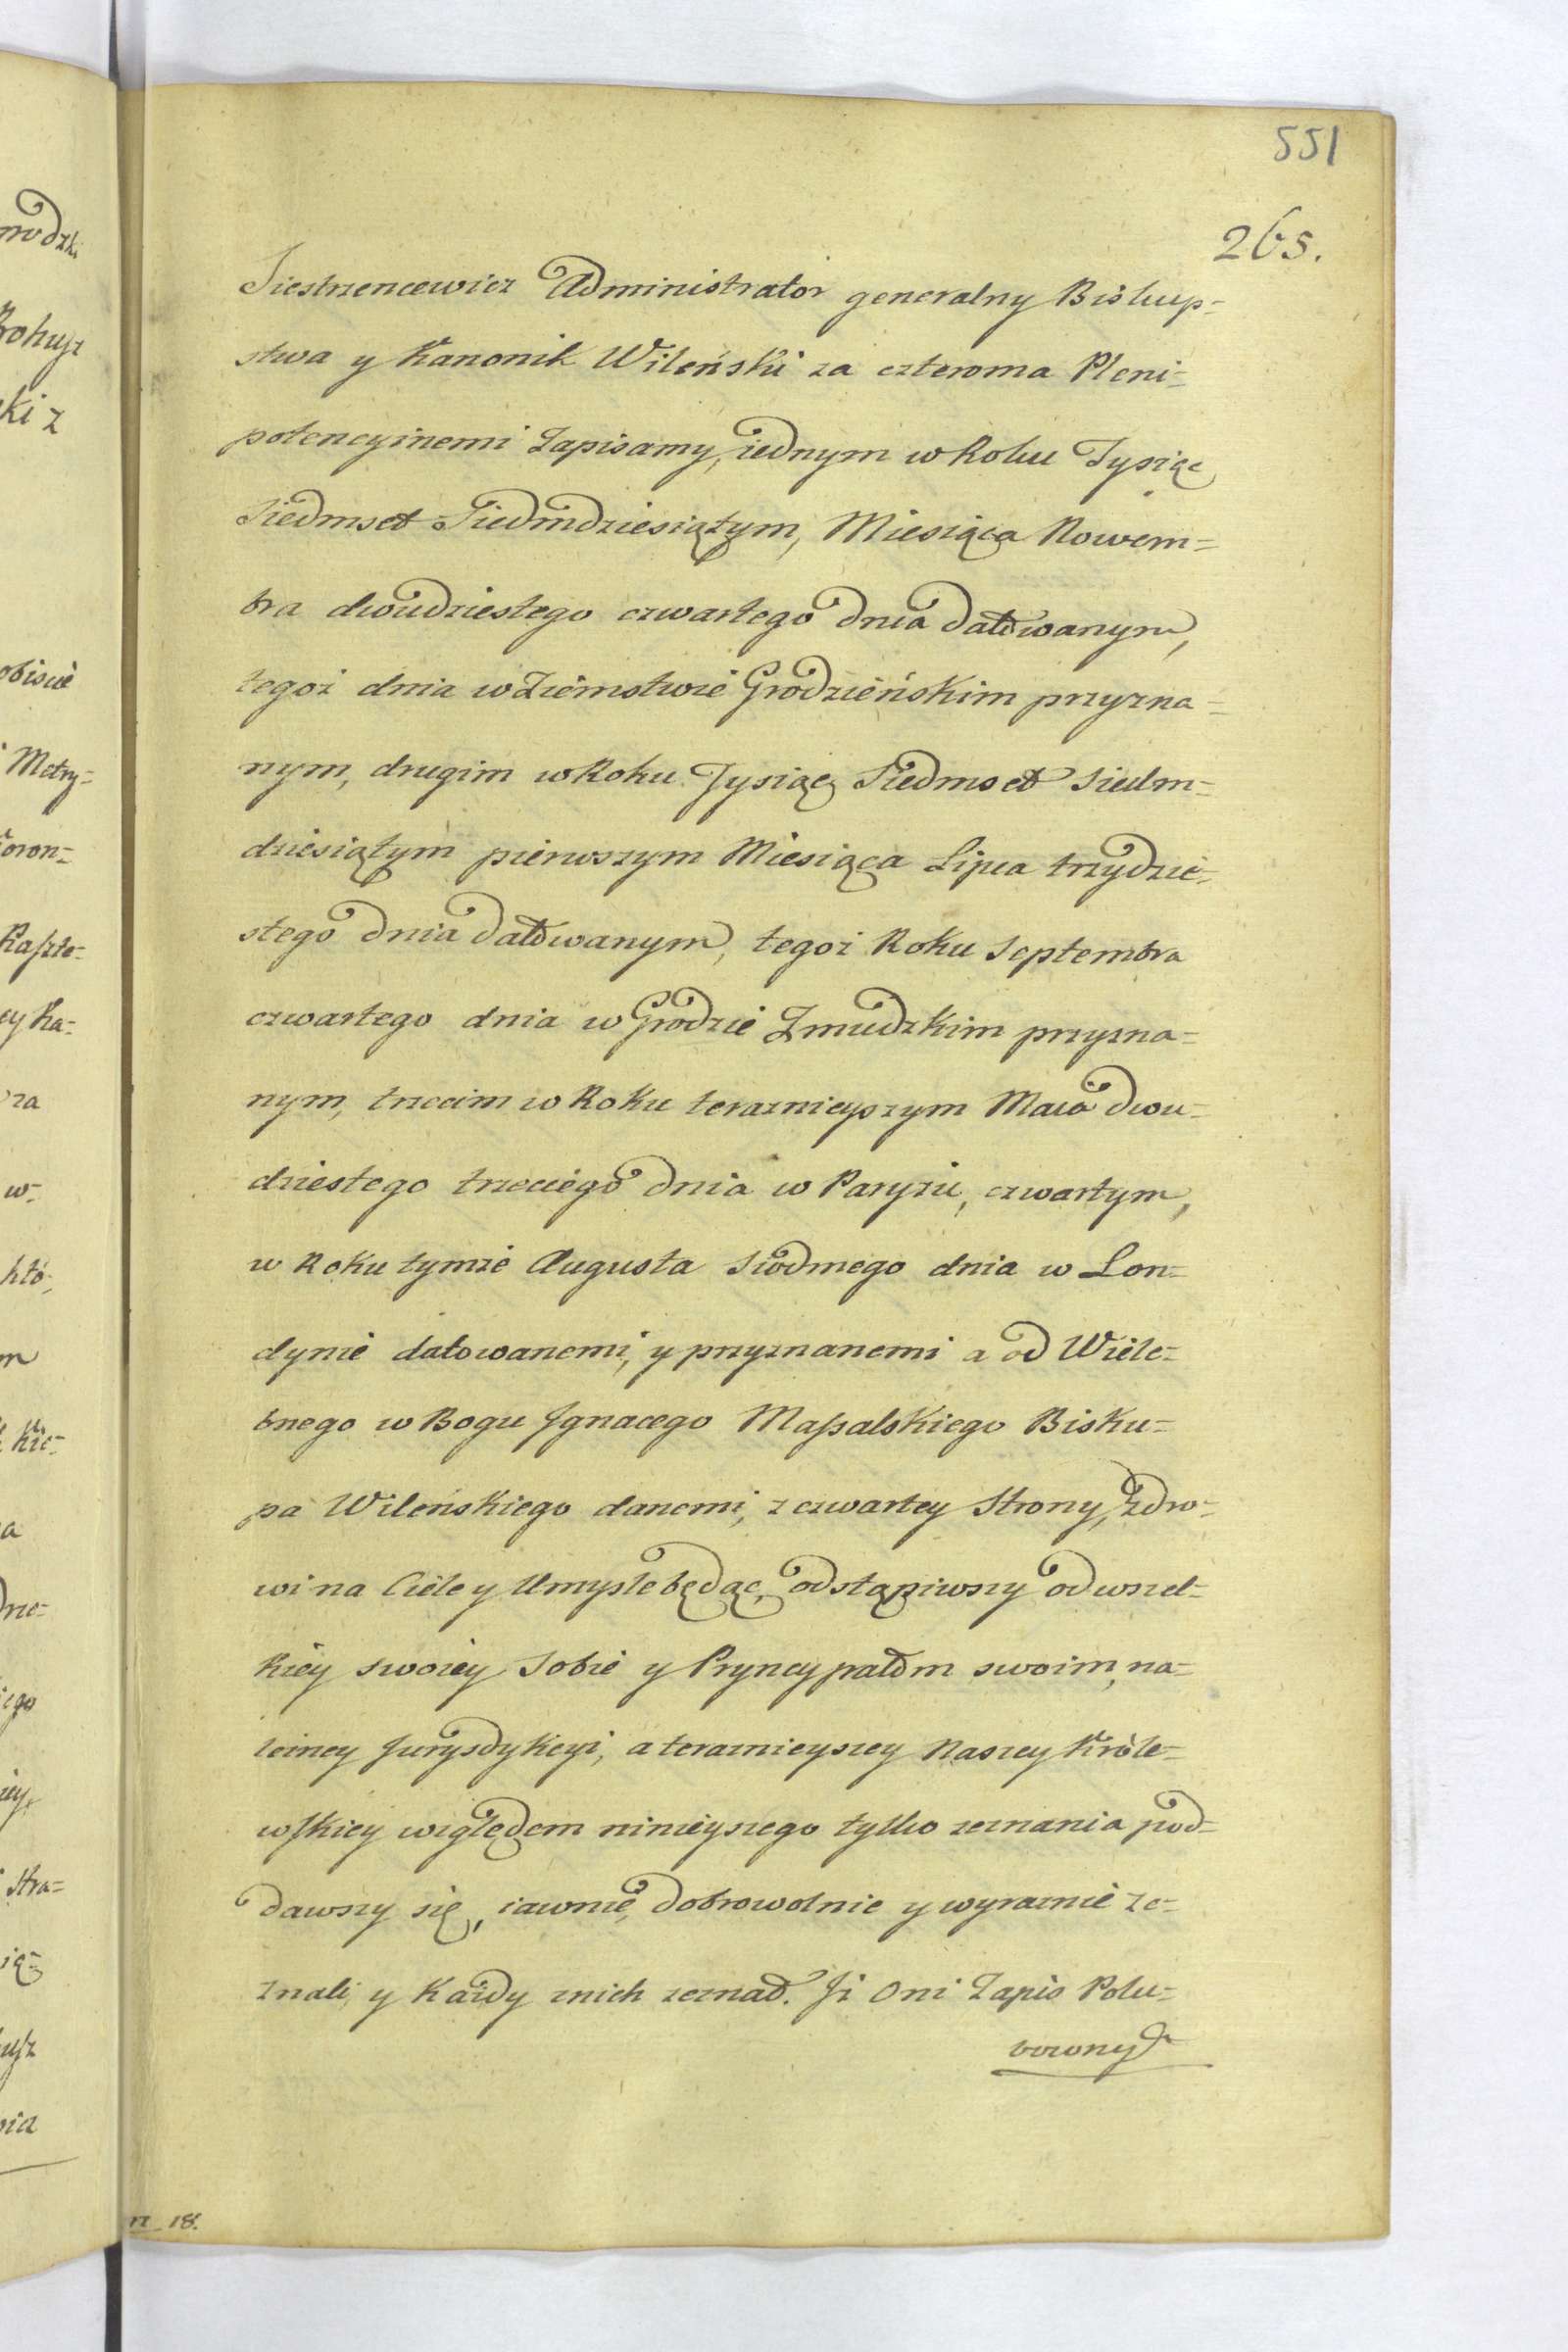 551
265.
Siestrzencewicz Administrator generalny Biskup=
stwa y Kanonik Wileński za czteroma Pleni=
potencyinemi Zapisamy, iednym w Roku Tysiąc
Siedmset Siedmdziesiątym, Miesiąca Nowem=
bra dwudziestego czwartego dnia datowanym,
tegoż dnia w Ziemstwie Grodzieńskim przyzna=
nym, drugim w Roku Tysiąc Siedmset siedm=
dziesiątym pierwszym Miesiąca Lipca trzydzie=
stego dnia datowanym, tegoż Roku Septembra
czwartego dnia w Grodzie Zmudzkim przyzna=
nym, trzecim w Roku teraznieyszym Maia dwu=
dziestego trzeciego dnia w Paryżu, czwartym,
w Roku tymże Augusta siodmego dnia w Lon=
dynie datowanemi, y przyznanemi a od Wiele=
bnego w Bogu Ignacego Maſsalskiego Bisku=
pa Wileńskiego danemi, z czwartey Strony, Zdro=
wi na Ciele y Umyśle będąc, odstąpiwszy od wszel=
kiey swoiey Sobie y Pryncypałom swoim, na=
leżney Jurysdykcyi, a teraznieyszey Naszey Króle=
wſkiey względem ninieyszego tylko zeznania pod=
dawszy się, iawnie, dobrowolnie y wyraznie ze=
znali, y Każdy znich zeznał. Iż Oni Zapis Polu=
bowny
18.
modzki
Rohusz
ki z
obiscie
Metry=
oron=
Kaſzte=
ey Ka=
za
w=
któ=
m
Kie=
a
dze=
iego
iey,
Stra=
ią=
uſz
nia